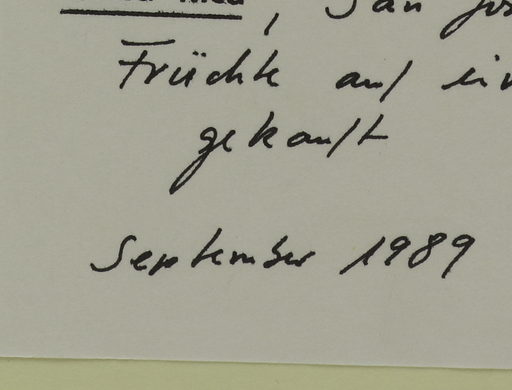 , San
Früchte auf
gekauft
September 1989